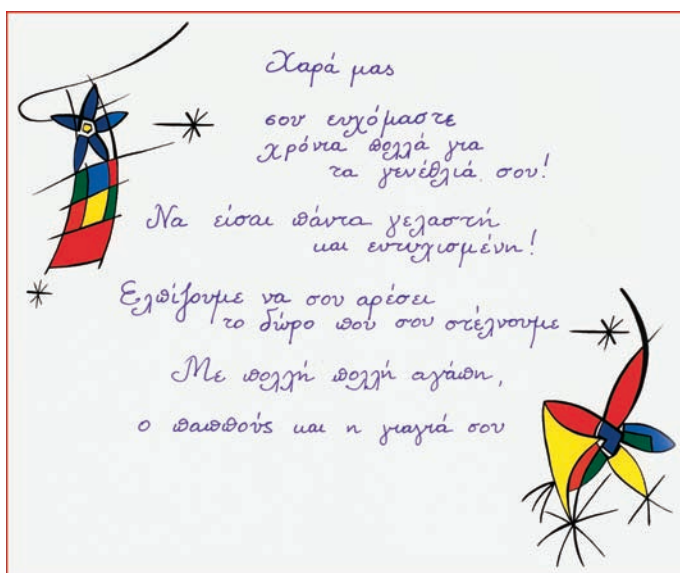 Χαρά μας
σου ευχόμαστε
χρόνια πολλά για
τα γενέθλιά σου!
Να είσαι πάντα γελαστή
και ευτυχισμένη!
Ελπίζουμε να σου αρέσει
το δώρο που σου στέλνουμε
Με πολλή πολλή αγάπη,
ο παππούς και η γιαγιά σου